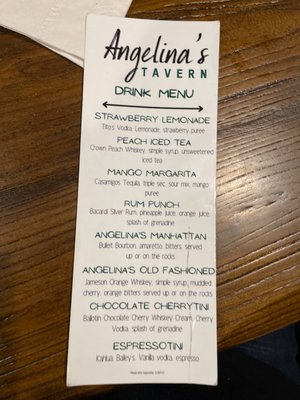 Angelina's
TAVERN
DRINK MENU
STRAWBERRY LEMONADE
Tito's Vodka, Lemonade, strawberry puree
PEACH ICED TEA
Crown Peach Whiskey, simple syrup, unsweetened
iced tea
MANGO MARGARITA
Casamigos, Tequila, triple sec, sour mix, mango
puree
RUM PUNCH
Bacardi Silver Rum, pineapple juice, orange juice,
splash of grenadine
ANGELINA'S MANHATTAN
Bullet Bourbon, amaretto, bitters, served
up or on the rocks
ANGELINA'S OLD FASHIONED
Jameson Orange Whiskey, simple syrup, muddled
cherry, orange bitters served up or on the rocks
CHOCOLATE CHERRYTINI
Ballotin Chocolate Cherry Whiskey Cream, Cherry
Vodka, splash of grenadine
ESPRESSOTINI
Kahlua, Bailey's, Vanilla vodka, espresso